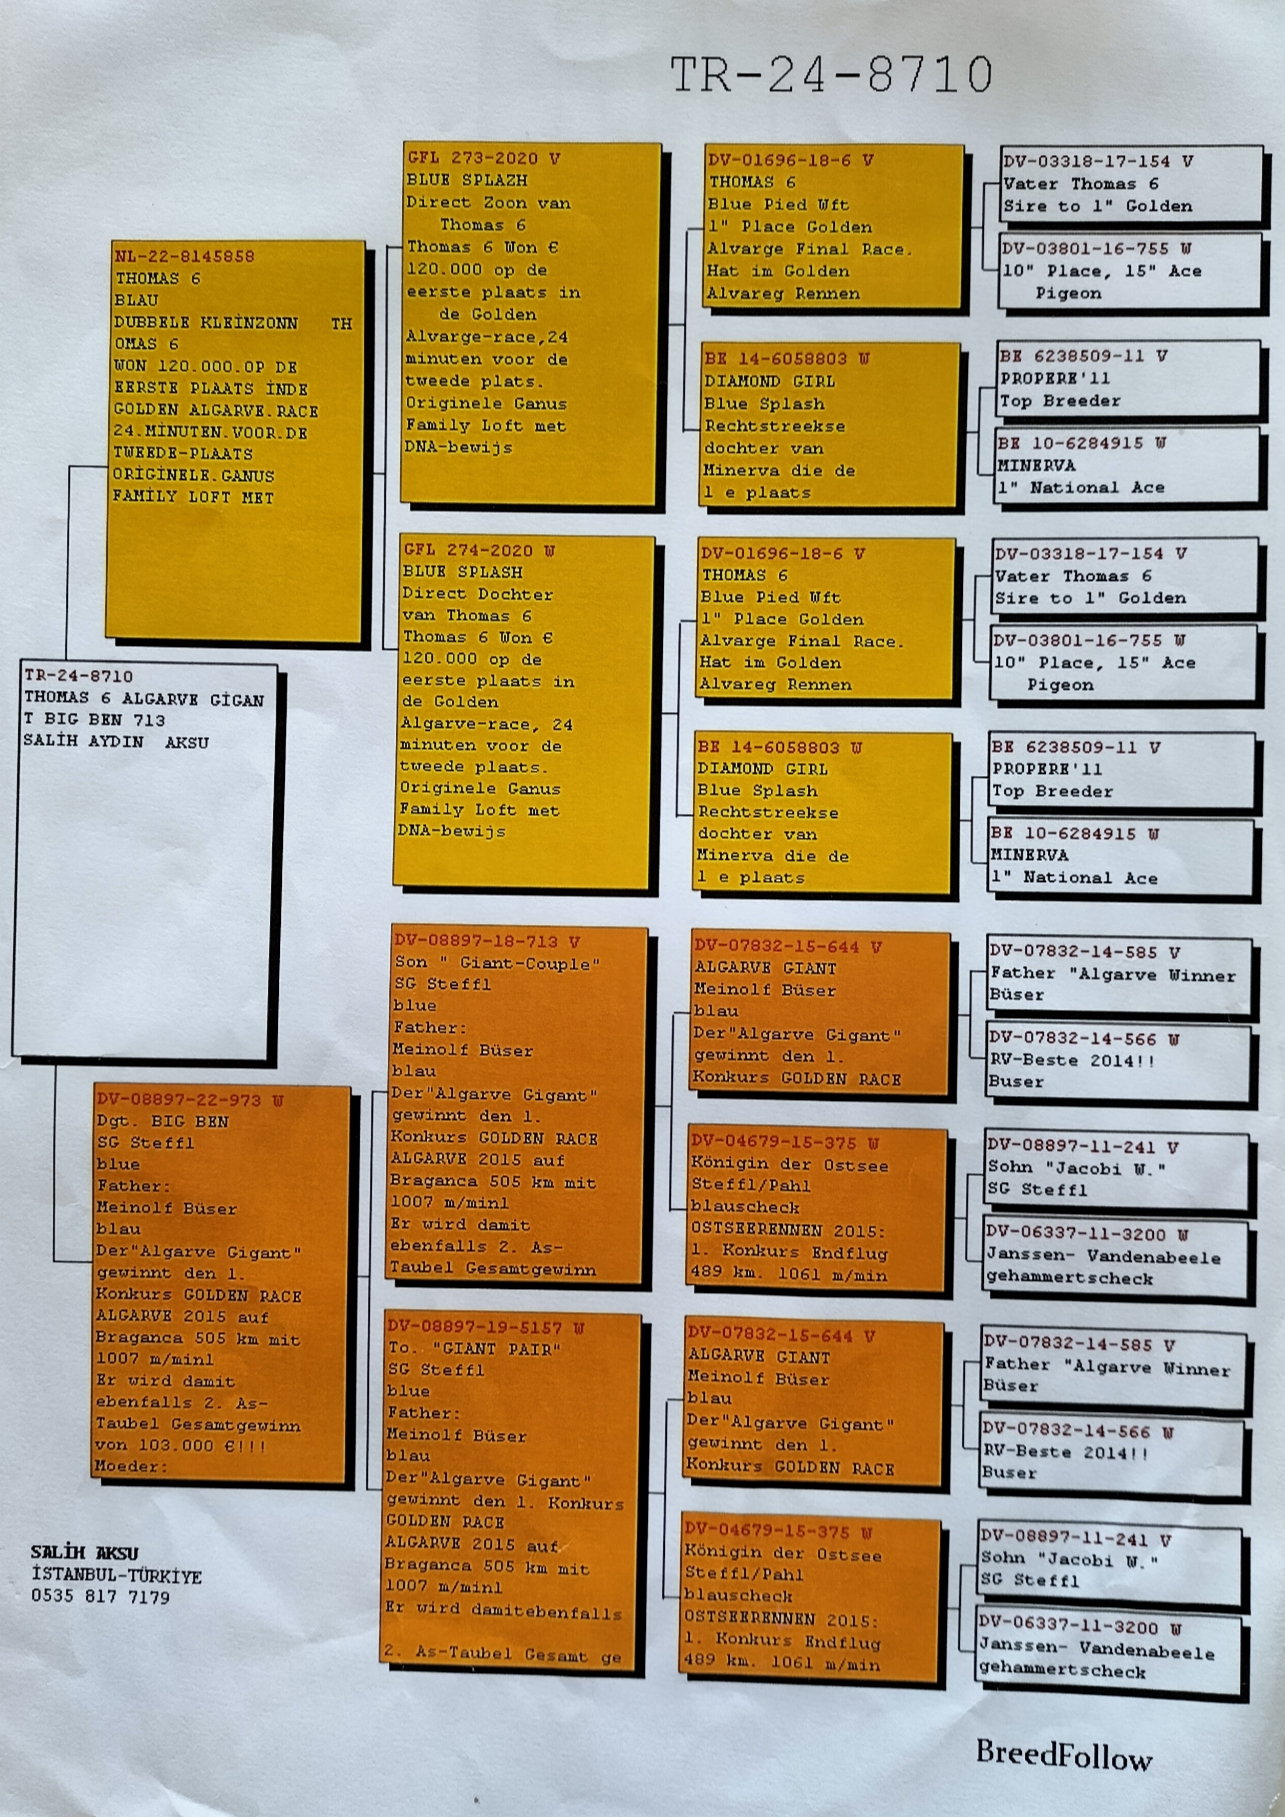 TR-24-8710
NL-22-8145858
THOMAS 6
BLAU
DUBBELE KLEİNZONN TH
OMAS 6
WON 120.000.OP DE
EERSTE PLAATS İNDE
GOLDEN ALGARVE.RACE
24.MİNUTEN.VOOR.DE
TWEEDE-PLAATS
ORİGİNELE.GANUS
FAMİLY LOFT MET
TR-24-8710
THOMAS 6 ALGARVE GİGAN
T BIG BEN 713
SALİH AYDIN AKSU
DV-08897-22-973 W
Dgt. BIG BEN
SG Steffl
blue
Father:
Meinolf Büser
blau
Der"Algarve Gigant"
gewinnt den 1.
Konkurs GOLDEN RACE
ALGARVE 2015 auf
Braganca 505 km mit
1007 m/minl
Er wird damit
ebenfalls 2. As-
Taubel Gesamtgewinn
von 103.000 €!!!
Moeder:
GFL 273-2020 V
BLUE SPLAZH
Direct Zoon van
Thomas 6
Thomas 6 Won €
120.000 op de
eerste plaats in
de Golden
Alvarge-race,24
minuten voor de
tweede plats.
Originele Ganus
Family Loft met
DNA-bewijs
GFL 274-2020 W
BLUE SPLASH
Direct Dochter
van Thomas 6
Thomas 6 Won €
120.000 op de
eerste plaats in
de Golden
Algarve-race, 24
minuten voor de
tweede plaats.
Originele Ganus
Family Loft met
DNA-bewijs
DV-08897-18-713 V
Son " Giant-Couple"
SG Steffl
blue
Father:
Meinolf Büser
blau
Der"Algarve Gigant"
gewinnt den 1.
Konkurs GOLDEN RACE
ALGARVE 2015 auf
Braganca 505 km mit
1007 m/minl
Er wird damit
ebenfalls 2. As-
Taubel Gesamtgewinn
DV-08897-19-5157 W
To.. "GIANT PAIR"
SG Steffl
blue
Father:
Meinolf Büser
blau
Der"Algarve Gigant"
gewinnt den 1. Konkurs
GOLDEN RACE
ALGARVE 2015 auf
Braganca 505 km mit
1007 m/minl
Er wird damitebenfalls
2. As-Taubel Gesamt ge
DV-01696-18-6 V
THOMAS 6
Blue Pied Wft
1" Place Golden
Alvarge Final Race.
Hat im Golden
Alvareg Rennen
BE 14-6058803 W
DIAMOND GIRL
Blue Splash
Rechtstreekse
dochter van
Minerva die de
1 e plaats
DV-01696-18-6 V
THOMAS 6
Blue Pied Wft
1" Place Golden
Alvarge Final Race.
Hat im Golden
Alvareg Rennen
BE 14-6058803 W
DIAMOND GIRL
Blue Splash
Rechtstreekse
dochter van
Minerva die de
1 e plaats
DV-07832-15-644 V
ALGARVE GIANT
Meinolf Büser
blau
Der"Algarve Gigant"
gewinnt den 1.
Konkurs GOLDEN RACE
DV-04679-15-375 W
Königin der Ostsee
Steffl/Pahl
blauscheck
OSTSEERENNEN 2015:
1. Konkurs Endflug
489 km. 1061 m/min
DV-07832-15-644 V
ALGARVE GIANT
Meinolf Büser
blau
Der"Algarve Gigant"
gewinnt den 1.
Konkurs GOLDEN RACE
DV-04679-15-375 W
Königin der Ostsee
Steffl/Pahl
blauscheck
OSTSEERENNEN 2015:
1. Konkurs Endflug
489 km. 1061 m/min
DV-03318-17-154 V
Vater Thomas 6
Sire to 1" Golden
DV-03801-16-755 W
10" Place, 15" Ace
Pigeon
BE 6238509-11 V
PROPERE'11
Top Breeder
BE 10-6284915 W
MINERVA
1" National Ace
DV-03318-17-154 V
Vater Thomas 6
Sire to 1" Golden
DV-03801-16-755 W
10" Place, 15" Ace
Pigeon
BE 6238509-11 V
PROPERE'11
Top Breeder
BE 10-6284915 W
MINERVA
1" National Ace
DV-07832-14-585 V
Father "Algarve Winner
Büser
DV-07832-14-566 W
RV-Beste 2014!!
Buser
DV-08897-11-241 V
Sohn "Jacobi W."
SG Steffl
DV-06337-11-3200 W
Janssen- Vandenabeele
gehammertscheck
DV-07832-14-585 V
Father "Algarve Winner
Büser
DV-07832-14-566 W
RV-Beste 2014!!
Buser
DV-08897-11-241 V
Sohn "Jacobi W."
SG Steffl
DV-06337-11-3200 W
Janssen- Vandenabeele
gehammertscheck
SALİH AKSU
İSTANBUL-TÜRKİYE
0535 817 7179
BreedFollow